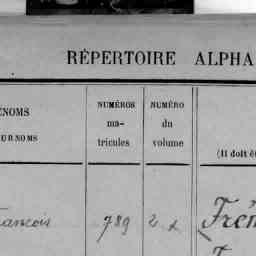 RÉPERTOIRE ALPHA
ÉNOMS
URNOMS
NUMÉROS
ma-
tricules
NUMÉRO
du
volume
(Il doit êt
rançois 789 2 x Frém